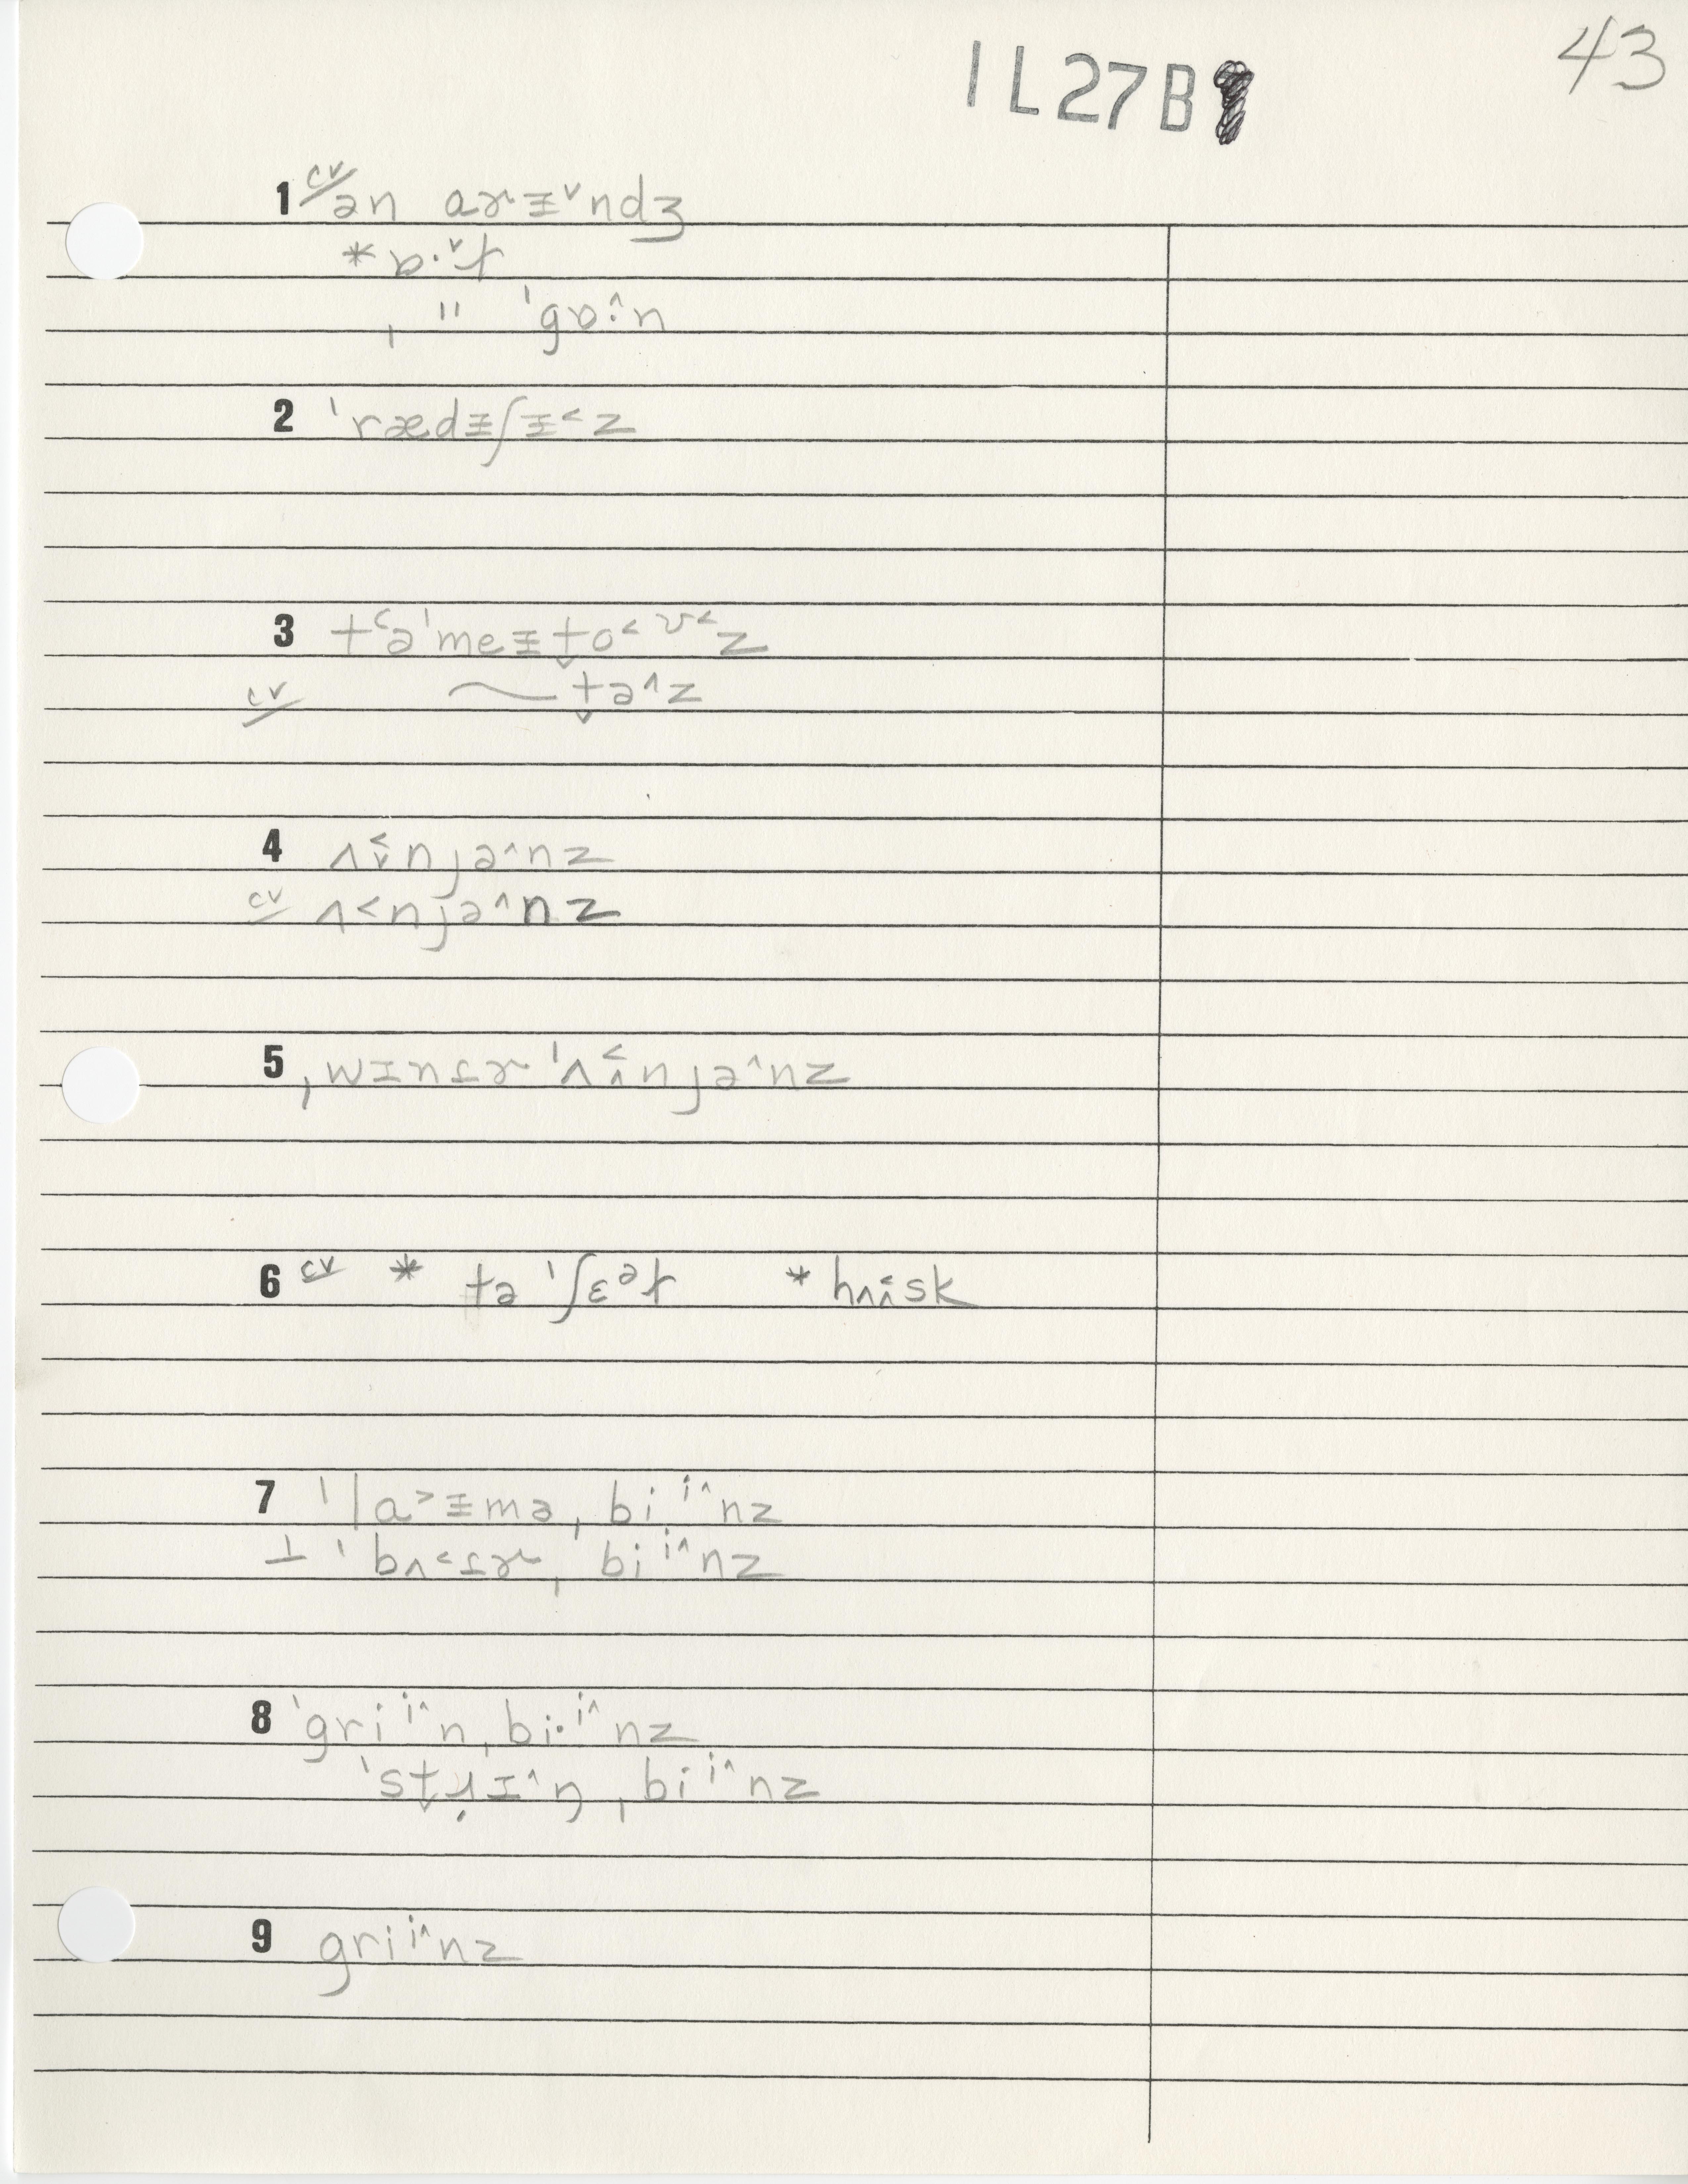 IL27B
43
1 cv ən ɑɚᵻ˅ndʒ
ˌ " ˈgɒ:^n
2 ˈrædᵻʃᵻ˂z
3 tʿəˈmeᵻt̬o˂ʊ˂z
cv ⁓t̬ə^z
4 ʌ˂̬njə^nz
cv ʌ˂njə^nz
5 ˌwɪnɾɚ ˈʌ˂̭njə^nz
6 cv * tə ˈʃɛᵊɫ * hʌ˂̭sk
7 ˈlɑ˃ᵻmə ˌbiⁱ^nz
⊥ ˈbʌ˂ɾɚ ˌbiⁱ^nz
8 ˈgriⁱ^n ˌbi·ⁱ^nz
ˈst̬ɹ̣ɪ^ŋ ˌbiⁱ^nz
9 griⁱ^nz